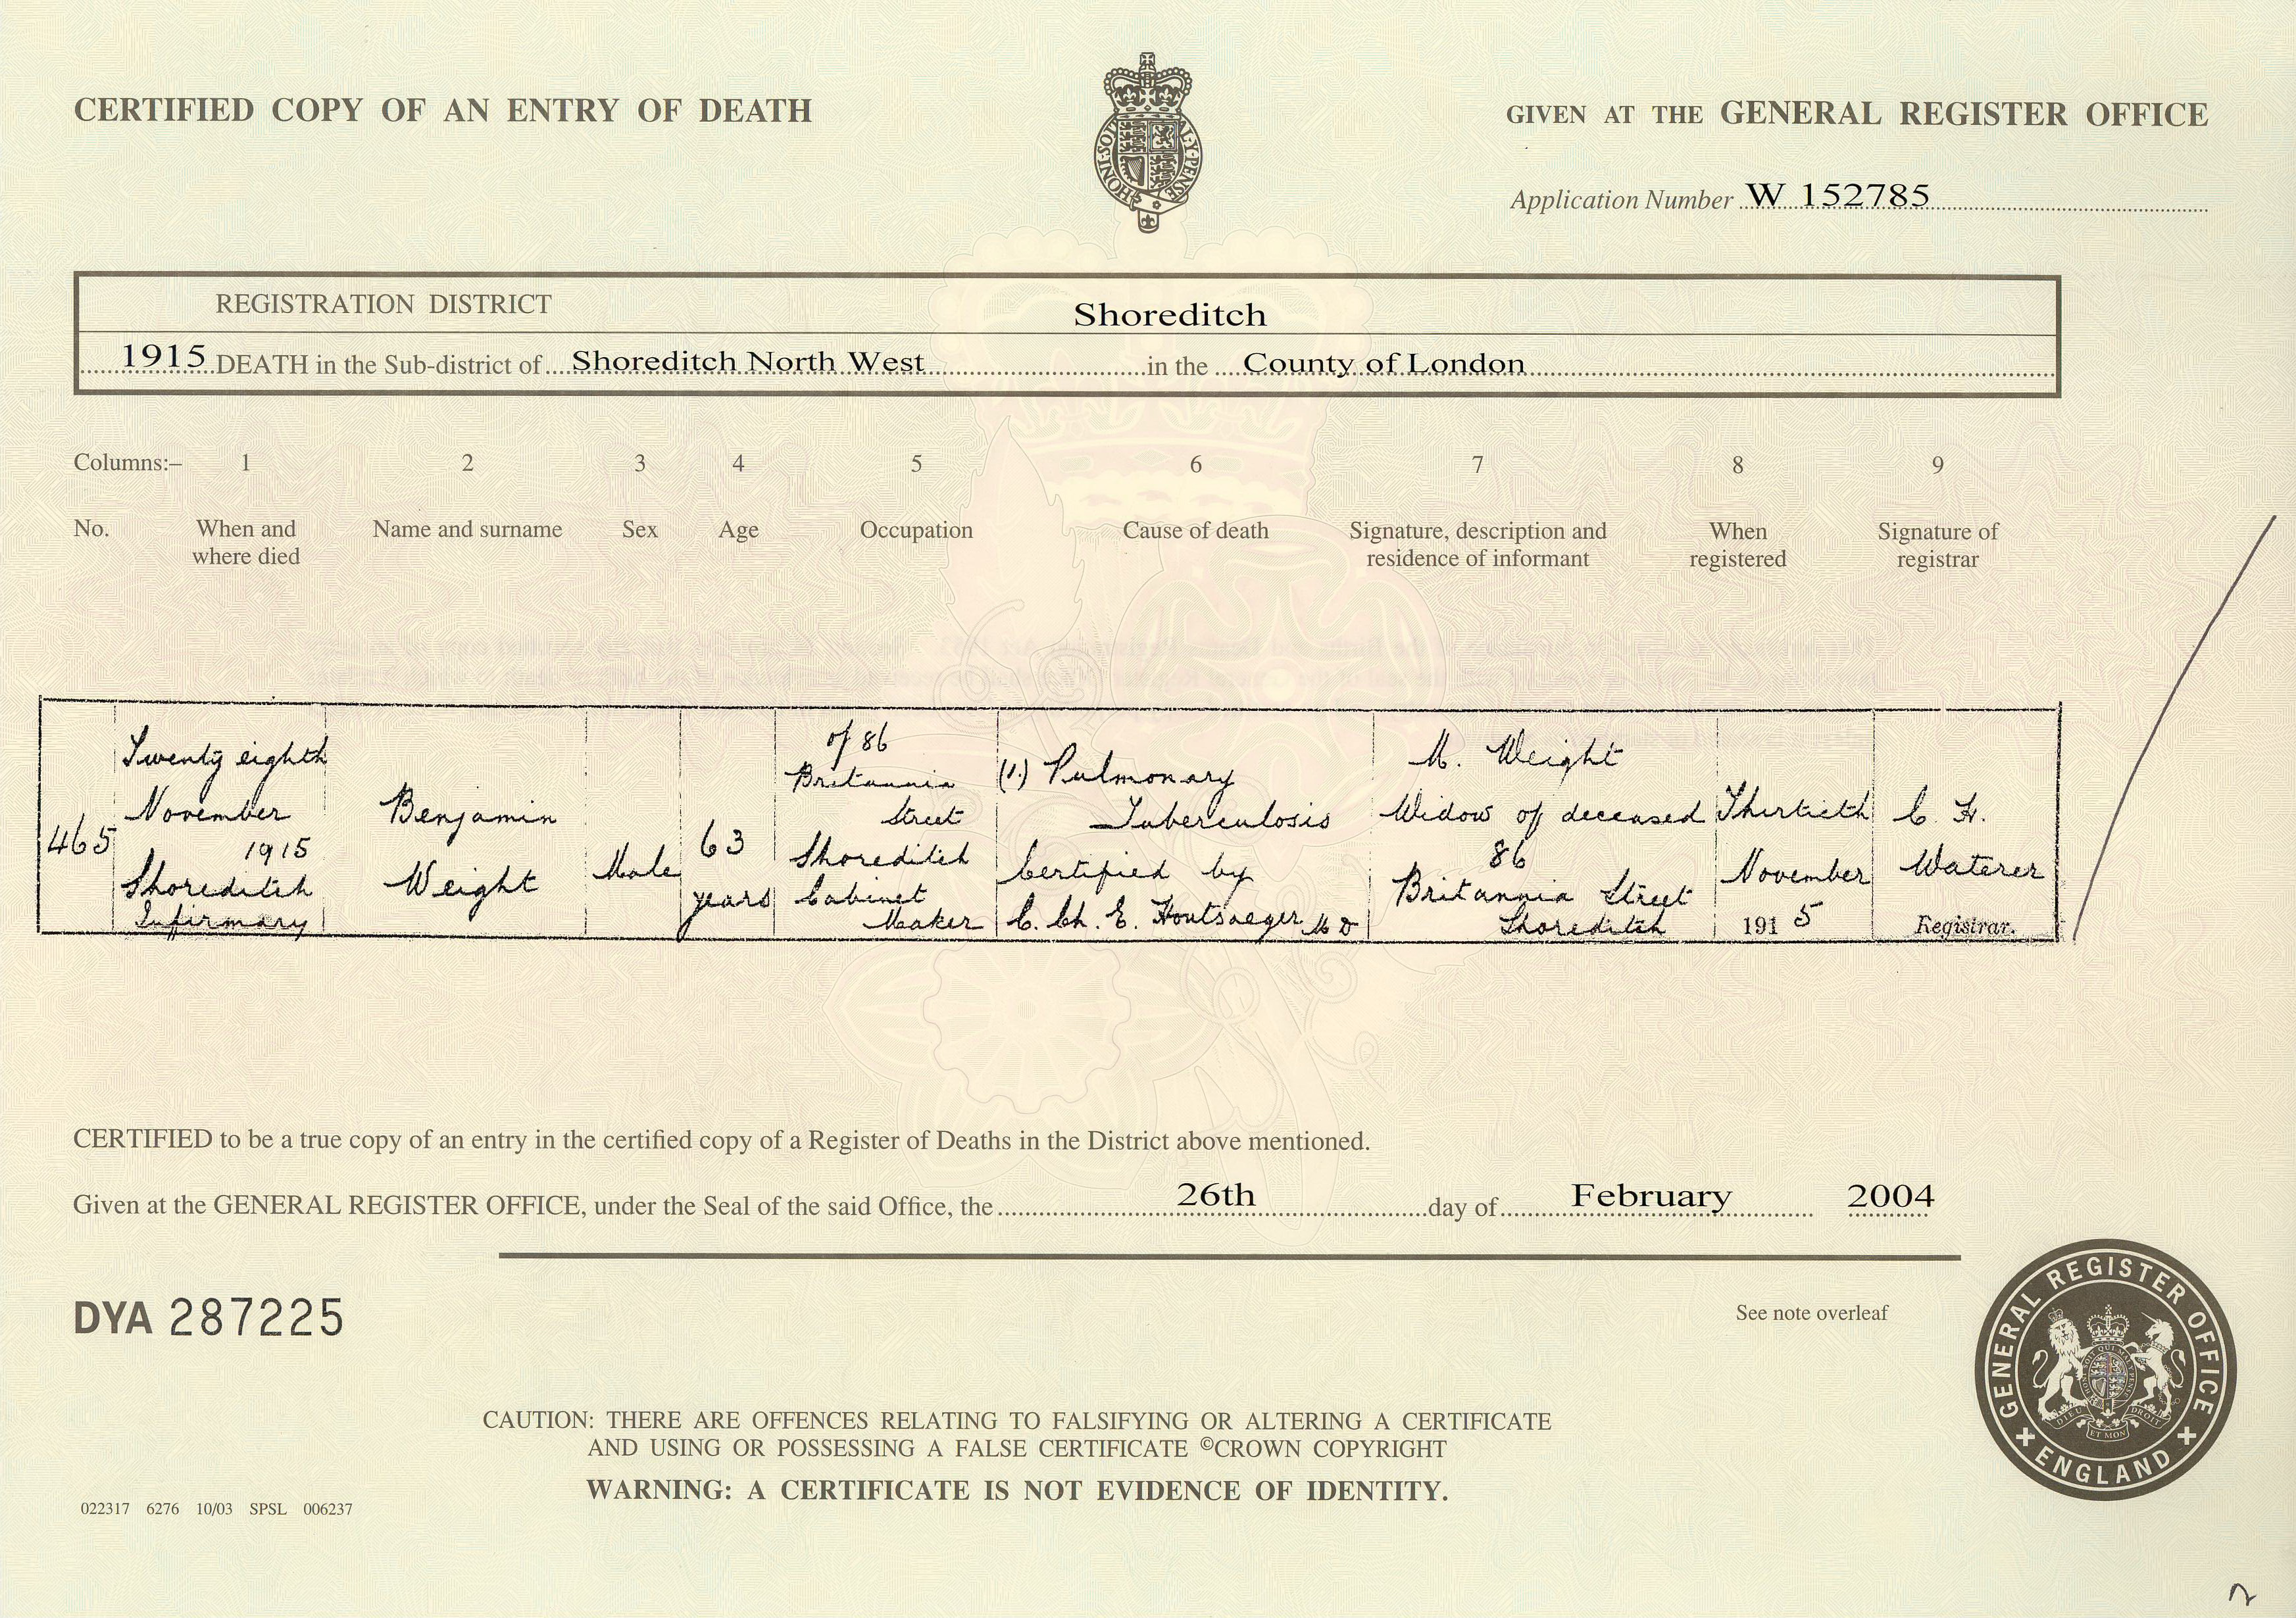 CERTIFIED COPY OF AN ENTRY OF DEATH
GIVEN AT THE GENERAL REGISTER OFFICE
HONI·SOIT
Y·PENSE
Application Number W 152785
REGISTRATION DISTRICT Shoreditch
1915 DEATH in the Sub-district of Shoreditch North West in the County of London
Columns:– 1 2 3 4 5 6 7 8 9
No. When and where died Name and surname Sex Age Occupation Cause of death Signature, description and residence of informant When registered Signature of registrar
465
Twenty eighth
November
1915
Shoreditch
Infirmary
Benjamin
Weight
Male
63
years
of 86
Britannia
Street
Shoreditch
Cabinet
Maker
(1.) Pulmonary
Tuberculosis
Certified by
C. Ch. E. Houtsaeger M D
M. Weight
Widow of deceased
86
Britannia Street
Shoreditch
Thirtieth
November
1915
C. H.
Waterer
Registrar.
CERTIFIED to be a true copy of an entry in the certified copy of a Register of Deaths in the District above mentioned.
Given at the GENERAL REGISTER OFFICE, under the Seal of the said Office, the 26th day of February 2004
DYA 287225
See note overleaf
GENERAL REGISTER OFFICE
ENGLAND
DIEU ET MON DROIT
CAUTION: THERE ARE OFFENCES RELATING TO FALSIFYING OR ALTERING A CERTIFICATE
AND USING OR POSSESSING A FALSE CERTIFICATE ©CROWN COPYRIGHT
WARNING: A CERTIFICATE IS NOT EVIDENCE OF IDENTITY.
022317 6276 10/03 SPSL 006237